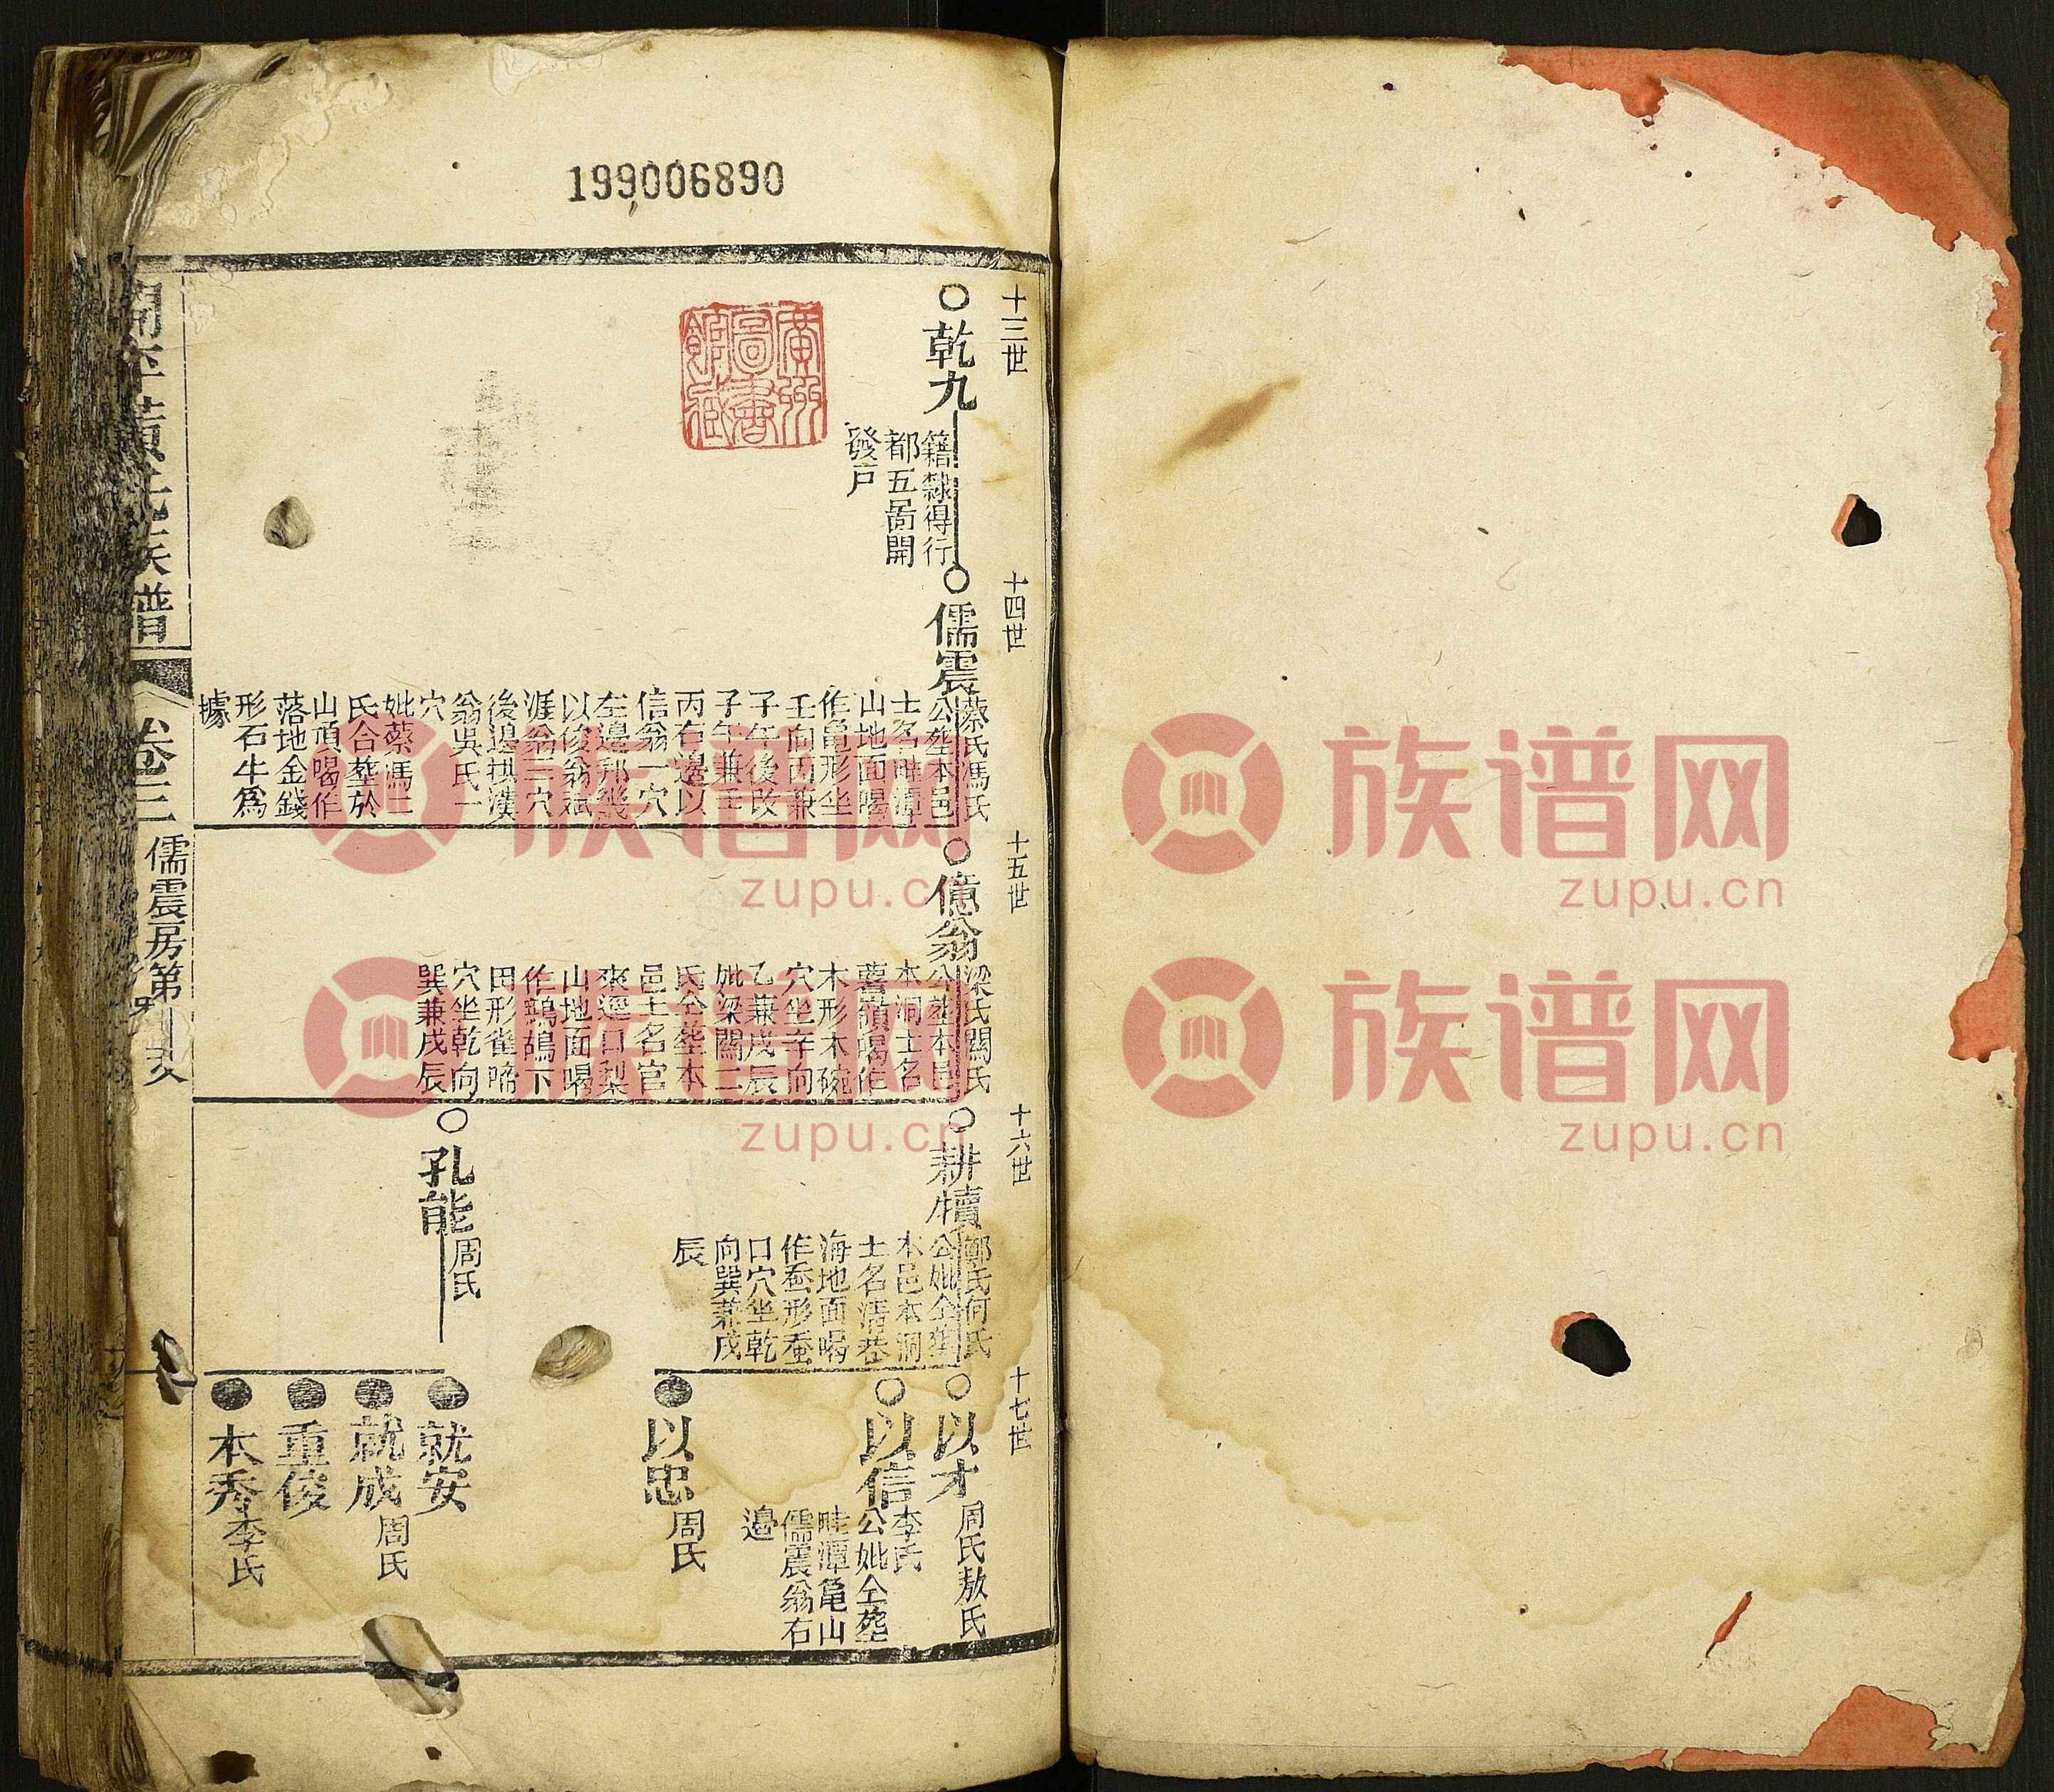 199006890
廣州
圖書
館藏
十三世
乾九
籍隸得行
都五啚開
發戶
十四世
儒震
蔡氏馮氏
公塟本邑
土名畦潭
山地面喝
作龜形坐
壬向丙兼
子午後改
子午兼壬
丙右邊以
信翁一穴
左邊邦幾
以俊翁
涯翁一穴
後邊拱漢
翁吳氏一
穴
妣蔡馮二
氏合塟於
山頂喝作
落地金錢
形石牛爲
據
十五世
億翁
梁氏關氏
公塟本邑
本洞土名
舊嶺喝作
木形木碗
穴坐辛向
乙兼戌辰
妣梁關二
氏仝塟本
邑土名官
來逕口梨
山地面喝
作鷓鴣下
田形雀啼
穴坐乾向
巽兼戌辰
十六世
耕犢
鄭氏何氏
公妣仝塟
本邑本洞
土名清巷
海地面喝
作蚕形蚕
口穴坐乾
向巽兼戌
辰
孔能
周氏
十七世
以才
周氏敖氏
以信
李氏
公妣仝塟
畦潭龜山
儒震翁右
邊
以忠
周氏
就安
就成
周氏
重俊
本秀
李氏
開平黃氏族譜
卷三
儒震房第
族谱网
zupu.cn
族谱网
zupu.cn
族谱网
zupu.cn
族谱网
zupu.cn